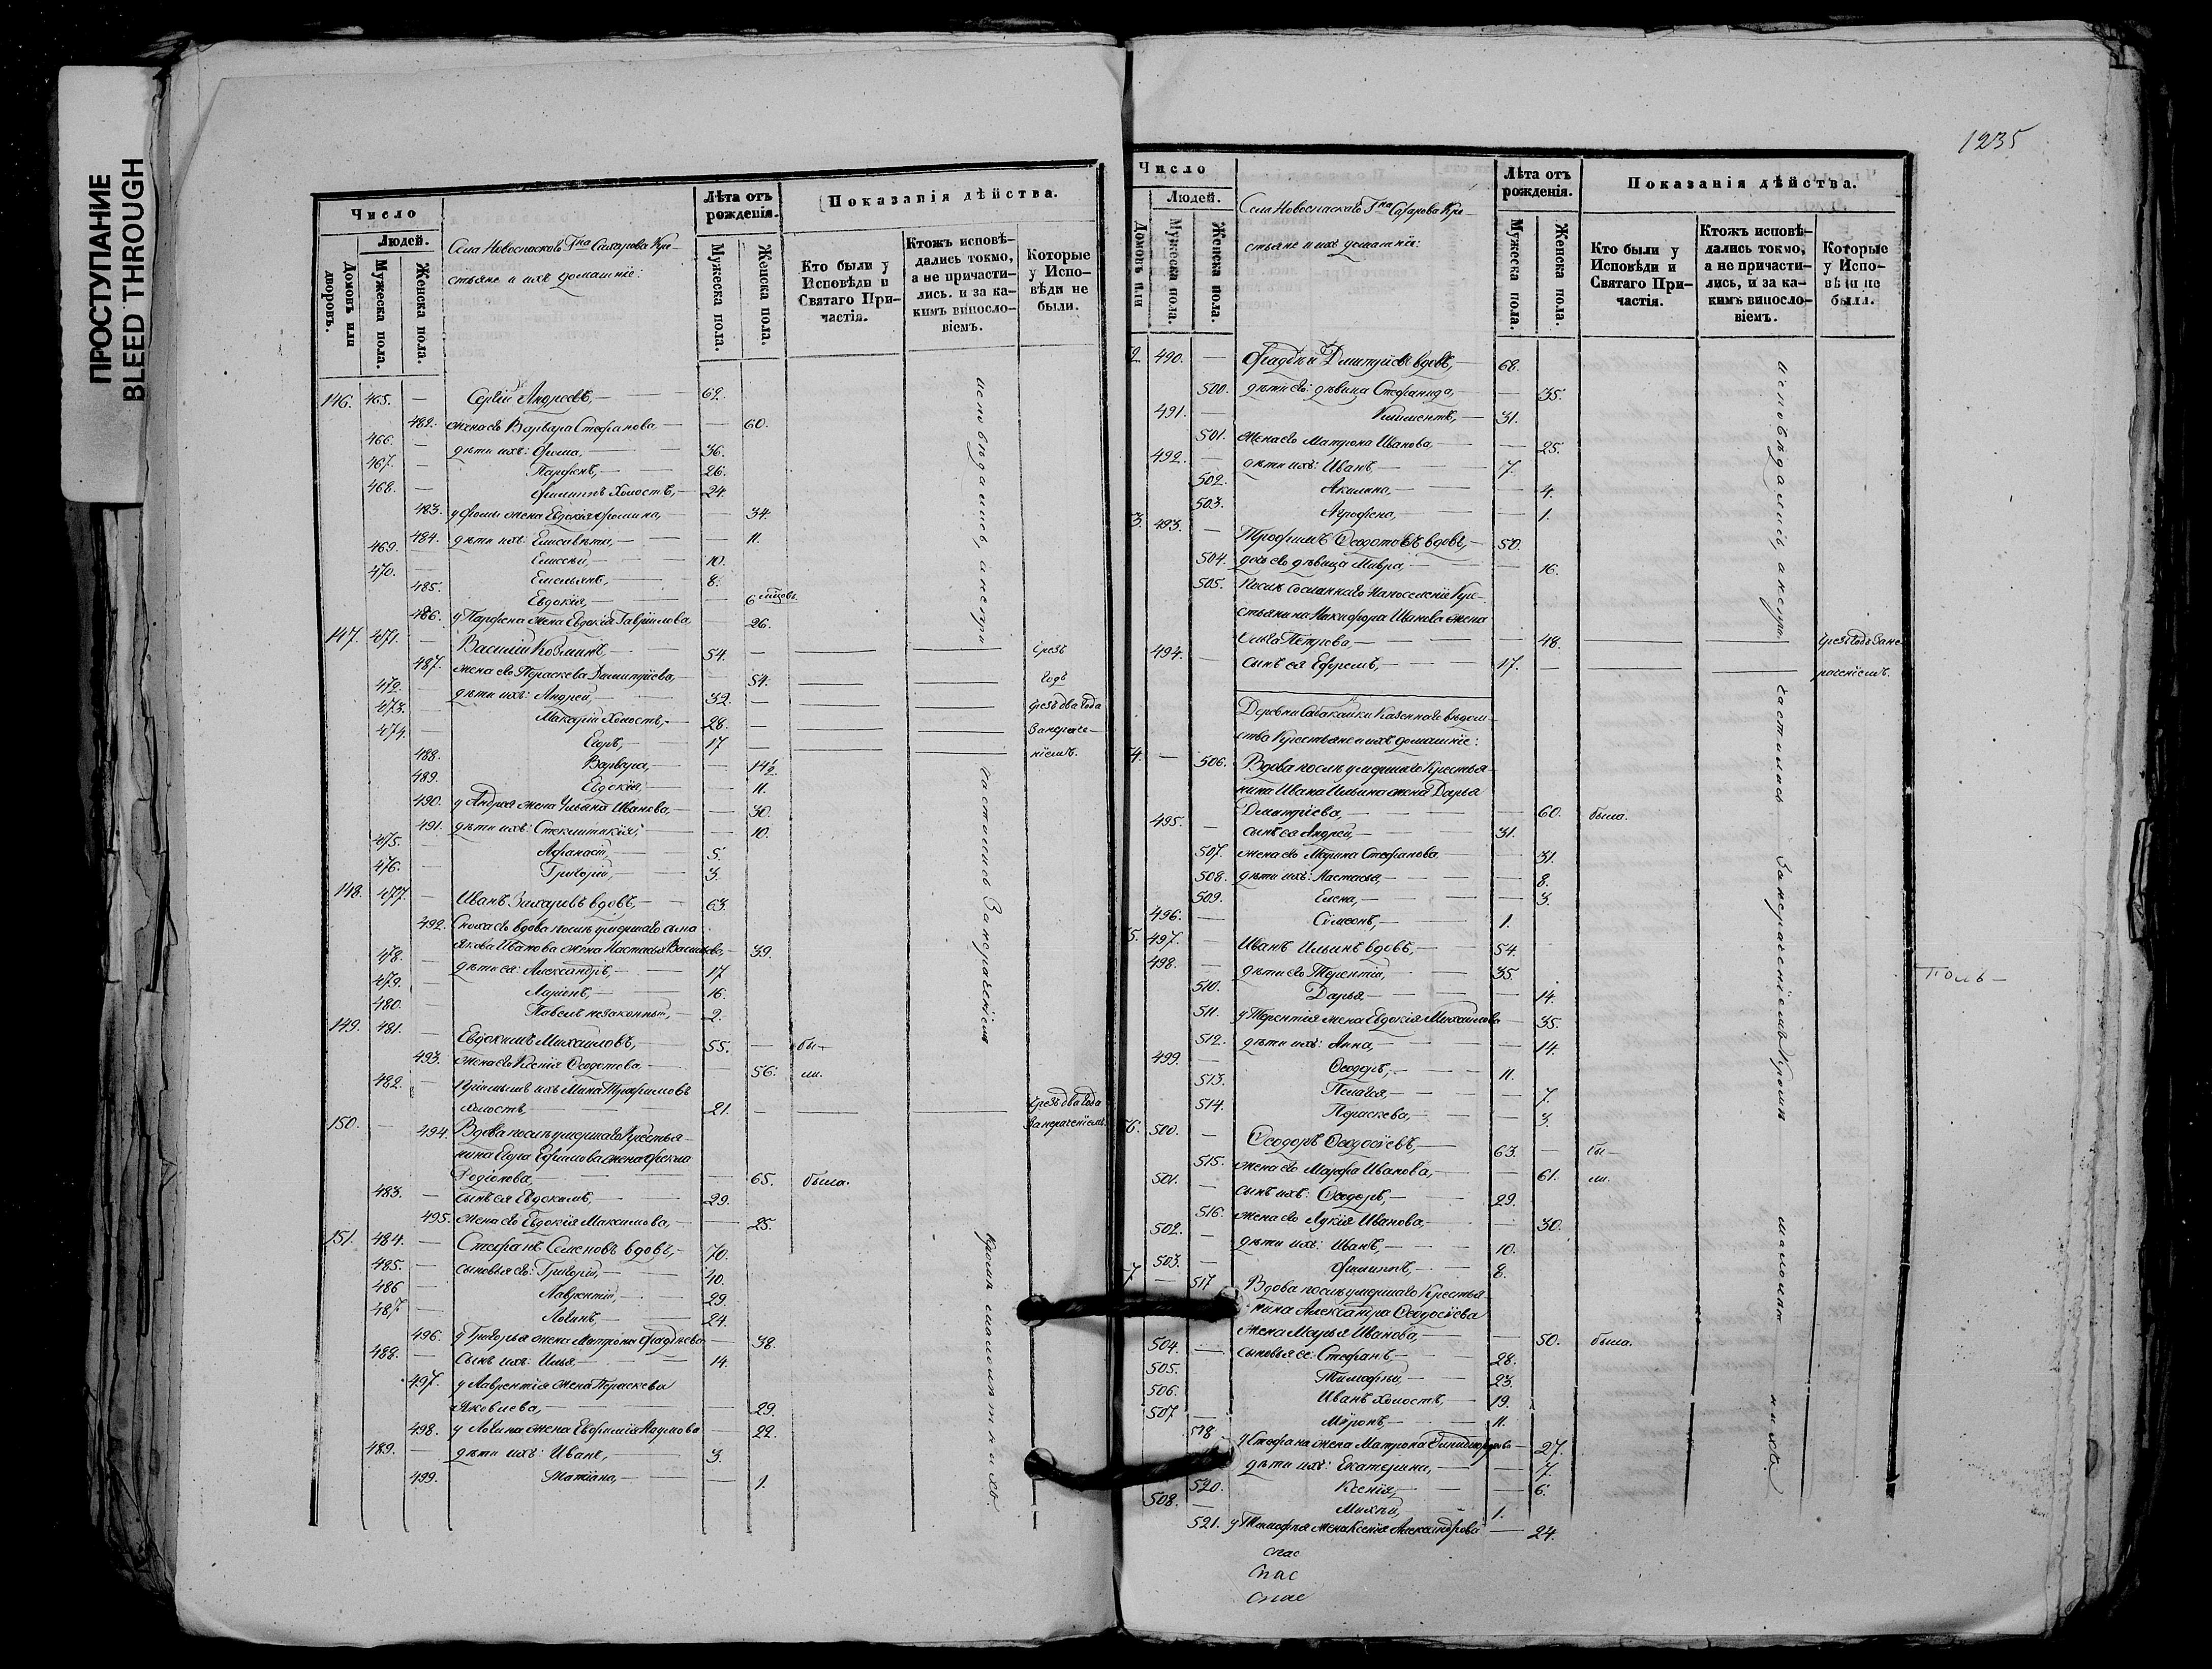 ПРОСТУПАНИЕ
BLEED THROUGH
Число
Людей.
Домовъ или дворовъ.
Мужеска пола.
Женска пола.
Села Новоспаскаго Г-на Сахарова Кре-
стьяне и ихъ домашніе:
Лѣта отъ рожденія.
Мужеска пола.
Женска пола.
Показанія дѣйства.
Кто были у Исповѣди и Святаго Причастія.
Ктожъ исповѣ-
дались токмо,
а не причасти-
лись. и за ка-
кимъ винословіемъ.
Которые
у Испо-
вѣди не
были.
146. 465. — Сергій Андреевъ, — 69.
482. жена его Варвара Стефанова, — 60.
466. — дѣти ихъ: Фома, — 36.
467. — Парфенъ, — 26.
468. — Филиппъ холостъ, — 24.
483. у Фомы жена Евдокія Фомина, — 34.
484. дѣти ихъ: Елисавета, — 11.
469. — Елисей, — 10.
470. — Емельянъ, — 8.
485. Евдокія, — 6 мѣсяцовъ.
486. у Парфена жена Евдокія Гавріилова — 26.
147. 471. — Василій Козминъ — 54. — Чрезъ
487. жена его Параскева Димитріева, — 54. — годъ
472. — дѣти ихъ: Андрей, — 32. — Чрезъ два года
473. — Макарій холостъ, — 28. — за нераче-
474. — Егоръ, — 17 — ніемъ.
488. Варвара, — 14½
489. Евдокія, — 11.
490. у Андрея жена Ульяна Иванова, — 30.
491. дѣти ихъ: Стеклитикія, — 10.
475. — Афанасій, — 5.
476. — Григорій, — 3.
148. 477. — Иванъ Захаровъ вдовъ, — 63.
492. Сноха его вдова послѣ умершаго сына
Якова Иванова жена Настасья Васильева, — 39.
478. — дѣти ея: Александръ, — 17
479. — Ларіонъ, — 16.
480. — Павелъ незаконный, — 2.
149. 481. — Евдокимъ Михаиловъ, — 55. — бы-
493. жена его Ксенія Ѳеодотова — 56. ли.
482. — Пріемышъ ихъ Мина Трофимовъ
холостъ, — 21. — Чрезъ два года
за нераченіемъ.
150. — 494. Вдова послѣ умершаго Крестья-
нина Егора Ефимова жена Фекла
Родіонова, — 65. была.
483. — сынъ ея Евдокимъ, — 29.
495. жена его Евдокія Максимова, — 25.
151. 484. — Стефанъ Семеновъ вдовъ, — 70.
485. — сыновья его: Григорій, — 40.
486 — Лаврентій, — 29.
487 — Логинъ, — 24.
496. у Григорья жена Матрона Фадѣева — 38.
488. — сынъ ихъ: Илья, — 14.
497. у Лаврентія жена Параскева
Яковлева, — 29.
498. у Логина жена Евфимія Наумова — 22.
489. — дѣти ихъ: Иванъ, — 3.
499. Матіана, — 1.
исповѣдались, а непри
частились За нераченіемъ
кромѣ малолѣтнихъ.
1235
Число
Людей.
Домовъ или
Мужеска пола.
Женска пола.
Села Новоспаскаго Г-на Сахарова Кре-
стьяне и ихъ домашніе:
Лѣта отъ рожденія.
Мужеска пола.
Женска пола.
Показанія дѣйства.
Кто были у Исповѣди и Святаго Причастія.
Ктожъ исповѣ-
дались токмо,
а не причасти-
лись, и за ка-
кимъ винословіемъ.
Которые
у Испо-
вѣди не
были.
2. 490. — Фадѣй Дмитріевъ вдовъ, — 68.
500. дѣти его: дѣвица Стефанида, — 35.
491. — Климентъ, — 31.
501. жена его Матрона Иванова, — 25.
492. — дѣти ихъ: Иванъ, — 7.
502. Акилина, — 4.
503. Агрофена, — 1.
3. 493. — Трофимъ Ѳеодотовъ вдовъ, — 50.
504. дочь его дѣвица Мавра — 16.
505. Послѣ сосланнаго на поселеніе Кре-
стьянина Никифора Иванова жена
Ольга Петрова, — 48. — Чрезъ годъ за не-
494. — сынъ ея Ефремъ, — 17. — раченіемъ.
Деревни Собакайки Казеннаго вѣдом-
ства Крестьяне и ихъ домашніе:
4. — 506. Вдова послѣ умершаго Крестья-
нина Ивана Ильина жена Дарья
Димитріева, — 60. была.
495. — сынъ ея Андрей, — 31.
507. жена его Марина Стефанова — 31.
508. дѣти ихъ: Настасья, — 8.
509. Елена, — 3.
496. — Сѵмеонъ, — 1.
5. 497. — Иванъ Ильинъ вдовъ, — 54.
498. — дѣти его Терентій, — 35.
510. Дарья, — 14.
511. у Терентія жена Евдокія Михаилова — 35.
512. дѣти ихъ: Анна, — 14.
499. — Ѳеодоръ, — 11.
513. Пелагея, — 7.
514. Параскева, — 3.
6. 500. — Ѳеодоръ Ѳеодосіевъ, — 63. — бы-
515. жена его Марфа Иванова, — 61. ли.
501. — сынъ ихъ: Ѳеодоръ, — 29.
516. жена его Лукія Иванова, — 30.
502. — дѣти ихъ: Иванъ, — 10.
503. — Филиппъ, — 8.
7 — 517 Вдова послѣ умершаго Крестья-
нина Александра Ѳеодосіева
жена Марья Иванова, — 50. была.
504. — сыновья ее: Стефанъ, — 28.
505. Тимофей, — 23.
506. Иванъ холостъ, — 19.
507 — Миронъ, — 11.
518 у Стефана жена Матрона — 27.
дѣти ихъ: Екатерина, — 7.
520. Ксенія, — 6.
508. — Михей, — 1.
521. у Тимофея жена Ксенія Александрова — 24.
исповѣдались, а непри-
частились За нераченіемъ Кромѣ
малолѣт
нихъ.
спас
спас
спас